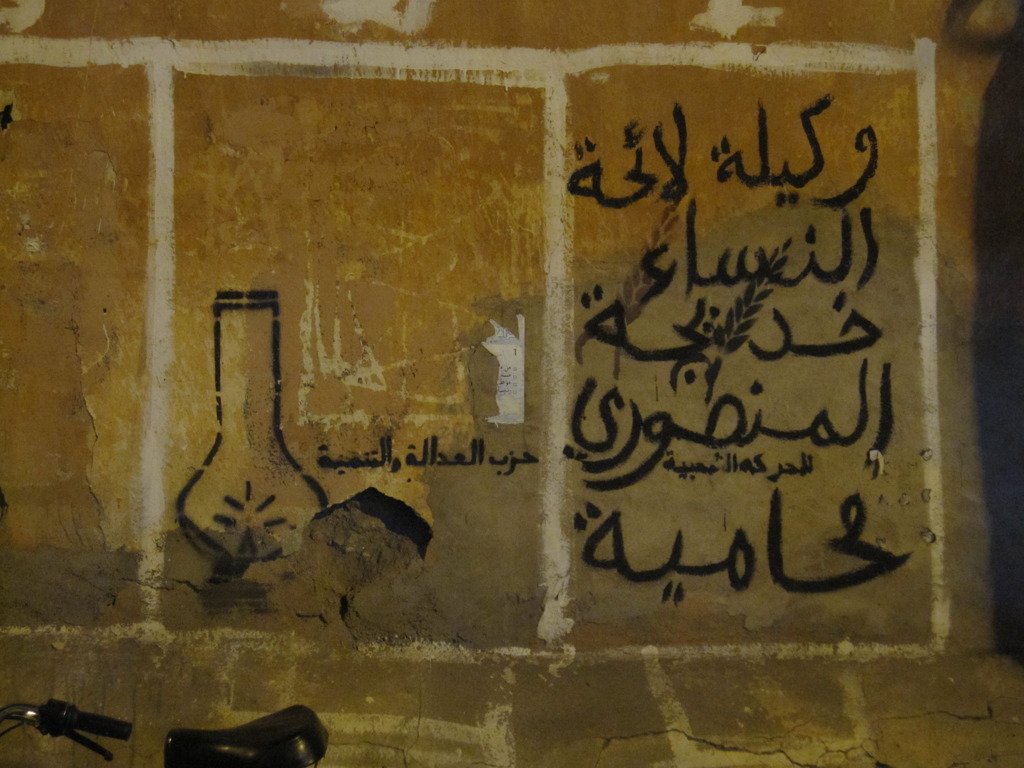 وكيلة لائحة
النساء
خديجة
المنصوري
الحركة الشعبية
محامية
حزب العدالة والتنمية